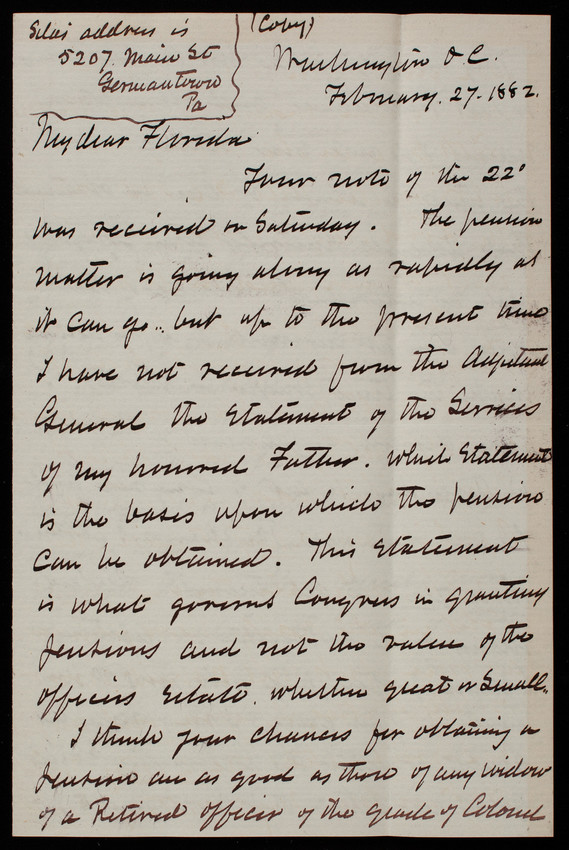 Silas address is
5207. Main St
Germantown
Pa
(Copy)
Washington D.C.
February. 27. 1882.
My dear Florida
Your note of the 22d
was received on Saturday. The pension
matter is going along as rapidly as
it can go.. but up to the present time
I have not received from the Adjutant
General the Statement of the Services
of my honored Father. which Statement
is the basis upon which the pension
can be obtained. This Statement
is what governs Congress in granting
pensions and not the value of the
officers Estate. whether great or Small..
I think your chances for obtaining a
pension are as good as those of any widow
of a Retired officer of the grade of Colonel